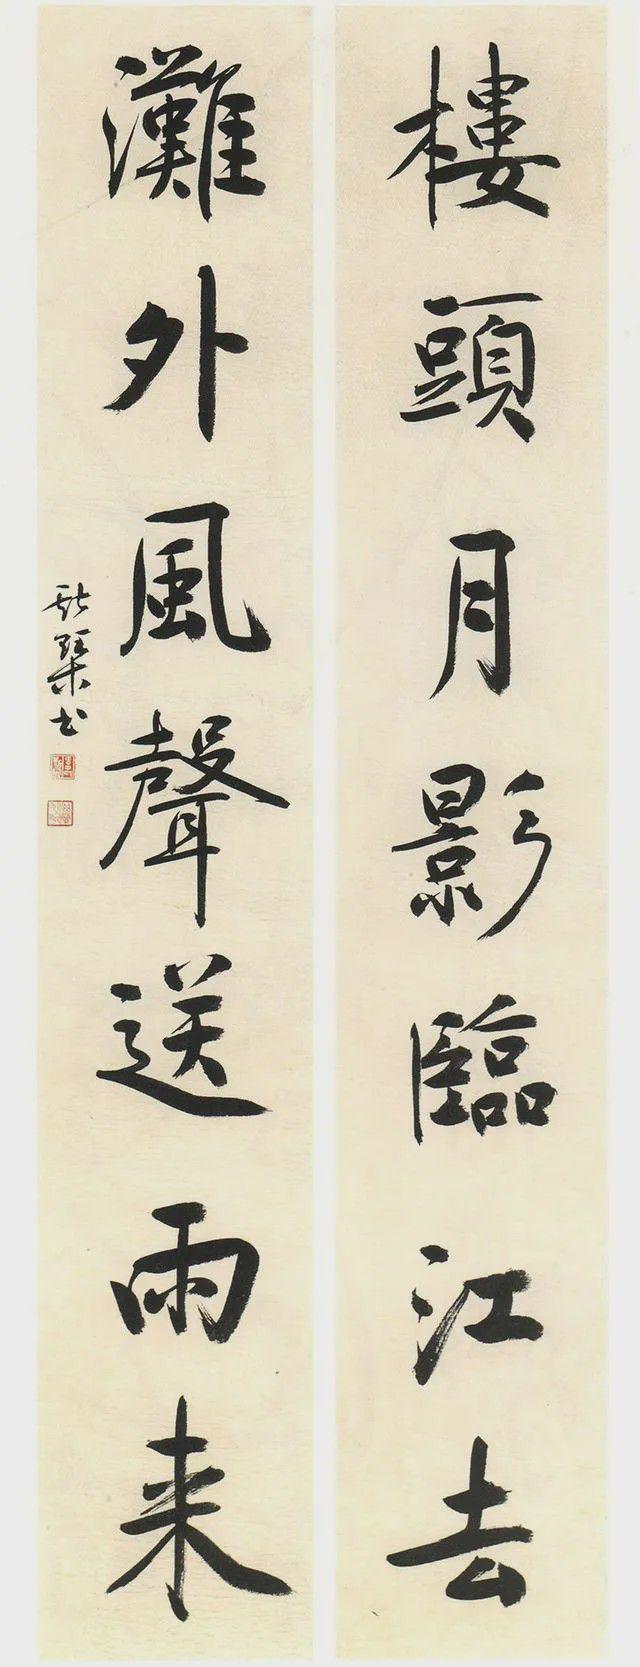 樓頭月影臨江去
灘外風聲送雨来
琹书